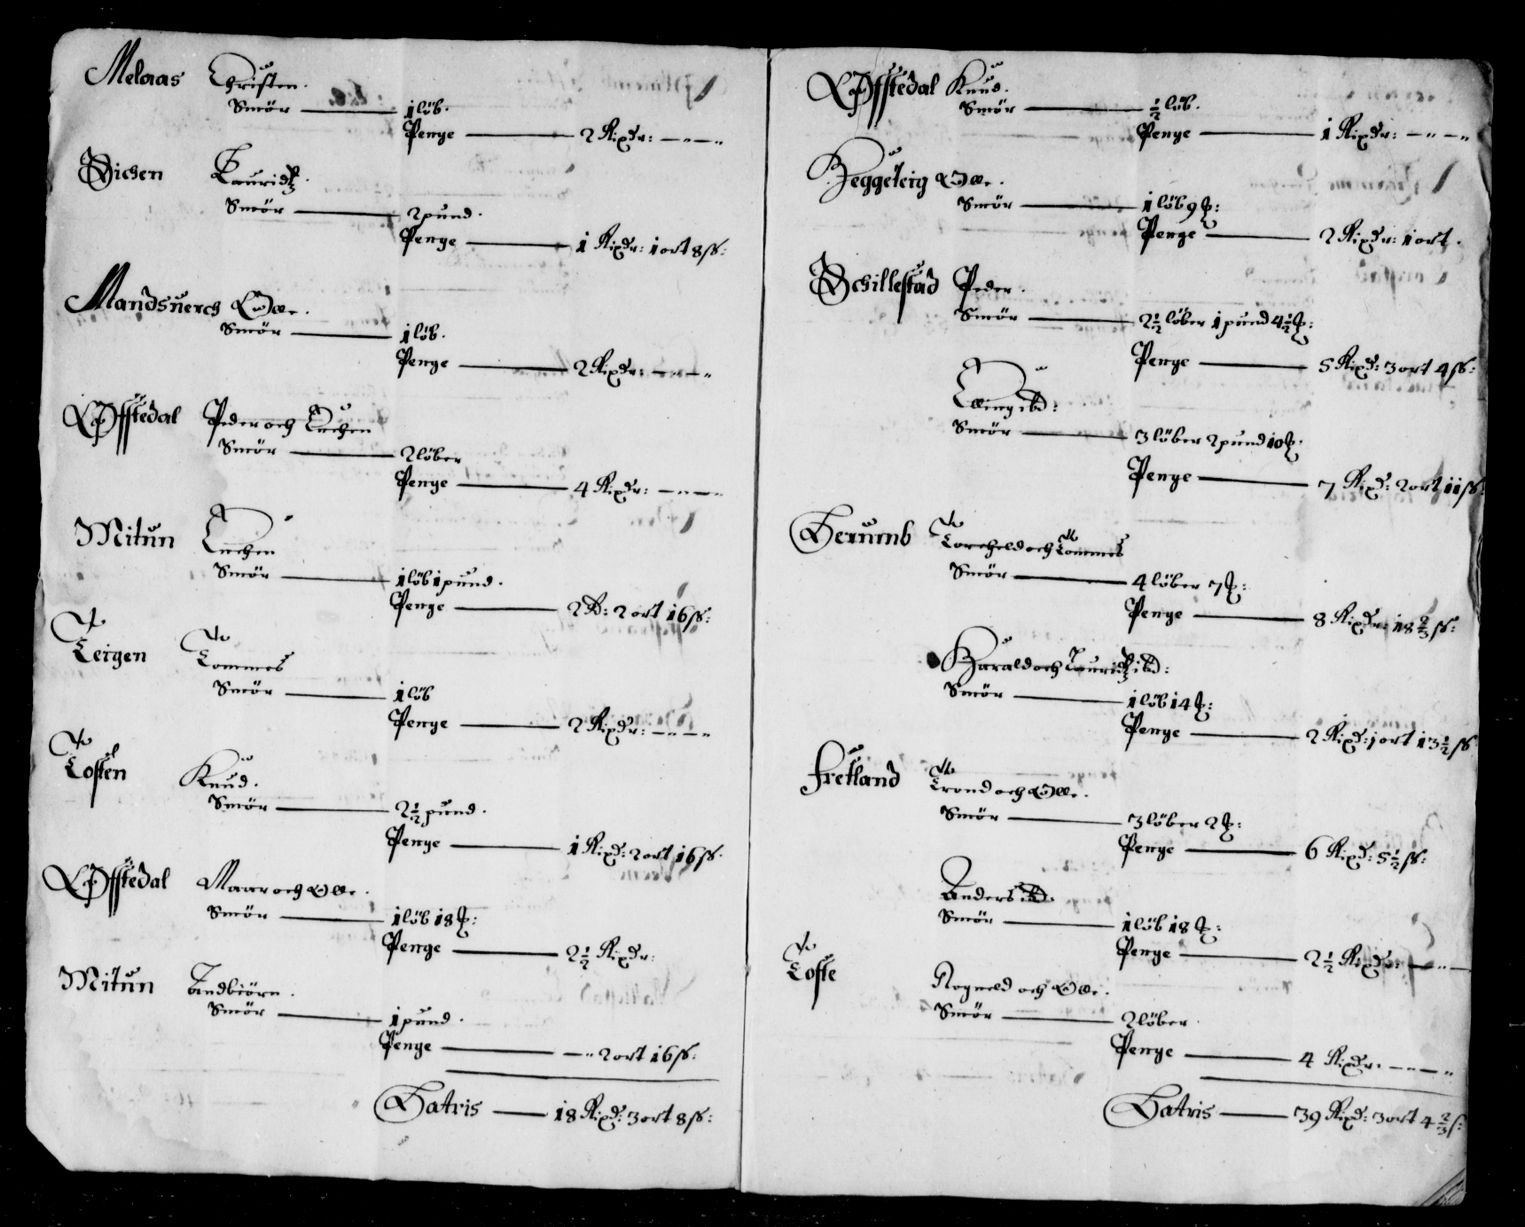 Melaas Christen.
Smör — 1 löb.
Penge — 2 Rixdr: —"—"
Sichen Lauridtz.
Smör — 2 pund.
Penge — 1 Rixdr: 1 ort 8 ß:
Mandsuerch Olle.
Smör — 1 löb.
Penge — 2 Rixdr: —"—"
Offstedal Peder och Enchen
Smör — 2 löber
Penge — 4 Rixdr: —"—"
Mitun Enchen
Smör — 1 löb 1 pund.
Penge — 2 D: 2 ort 16 ß:
Teigen Tommes
Smör — 1 löb
Penge — 2 Rixdr: —"—"
Tosten Knud.
Smör — 2½ pund.
Penge — 1 Rixd: 2 ort 16 ß.
Offstedal Maar och Olle.
Smör — 1 löb 18 ꝶ:
Penge — 2½ Rixdr:
Mitun Andbiörn.
Smör — 1 pund.
Penge — —" 2 ort 16 ß:
Latris — 18 Rixd: 3 ort 8 ß:
Offstedal Knud.
Smör — ½ löb.
Penge — 1 Rixdr: —"—"
Heggeleig Olle.
Smör — 1 löb 9 ꝶ:
Penge — 2 Rixdr: 1 ort.
Schillestad Peder.
Smör — 2½ löber 1 pund 4½ ꝶ:
Penge — 5 Rixd: 3 ort 4 ß:
Elling ibd:
Smör — 3 löber 2 pund 10 ꝶ.
Penge — 7 Rixd: 2 ort 11 ß:
Berumb Torcheld och Tommes
Smör — 4 löber 7 ꝶ:
Penge — 8 Rixdr: 18⅔ ß:
Harald och Lauridtz ibd:
Smör — 1 löb 14 ꝶ:
Penge — 2 Rixd: 1 ort 13½ ß
Fretland Trond och Olle.
Smör — 3 löber 2 ꝶ:
Penge — 6 Rixd: 5½ ß:
Anders ibd
Smör — 1 löb 18 ꝶ:
Penge — 2½ Rixdr: —"—
Tofte Rogneld och Olle.
Smör — 2 löber.
Penge — 4 Rixdr. —"—"
Latris — 39 Rixd: 3 ort 4⅔ ß: